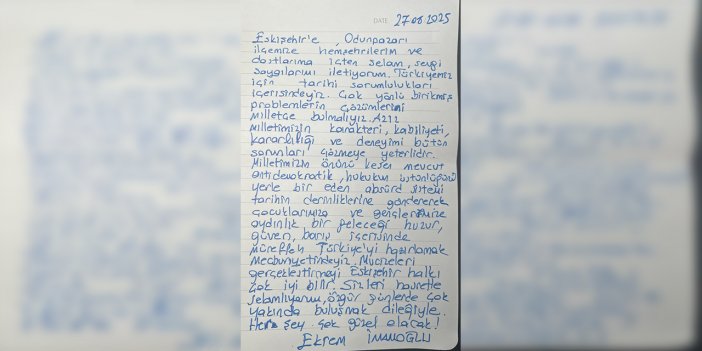 DATE 27.08.2025
Eskişehir'e, Odunpazarı
ilçemize hemşehrilerim ve
dostlarıma içten selam, sevgi
saygılarımı iletiyorum. Türkiyemiz
için tarihi sorumlulukları
içerisindeyiz. Çok yönlü birikmiş
problemlerin çözümlerini
milletçe bulmalıyız. Aziz
milletimizin karakteri, kabiliyeti,
kararlılığı ve deneyimi bütün
sorunları çözmeye yeterlidir.
Milletimizin önünü kesen mevcut
antidemokratik, hukukun üstünlüğünü
yerle bir eden absürd sistemi
tarihin derinliklerine göndererek
çocuklarımıza ve gençlerimize
aydınlık bir geleceği huzur,
güven, barış içerisinde
müreffeh Türkiye'yi hazırlamak
mecburiyetindeyiz. Mucizeleri
gerçekleştirmeyi Eskişehir halkı
çok iyi bilir. Sizleri hasretle
selamlıyorum, özgür günlerde çok
yakında buluşmak dileğiyle.
Her şey çok güzel olacak!
Ekrem İMAMOĞLU